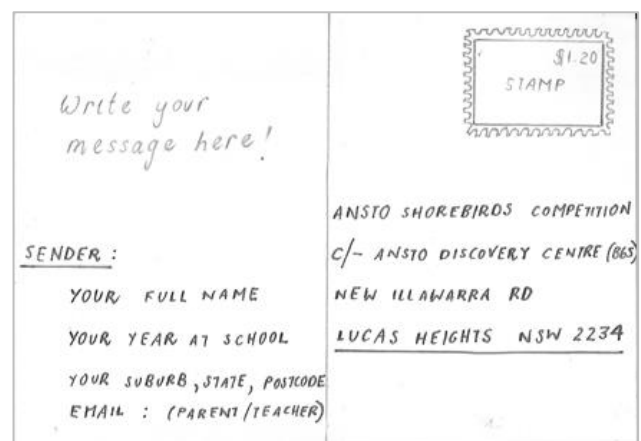 Write your
message here!
SENDER :
YOUR FULL NAME
YOUR YEAR AT SCHOOL
YOUR SUBURB, STATE, POSTCODE
EMAIL : (PARENT/TEACHER)
$1.20
STAMP
ANSTO SHOREBIRDS COMPETITION
C/- ANSTO DISCOVERY CENTRE (B65)
NEW ILLAWARRA RD
LUCAS HEIGHTS NSW 2234